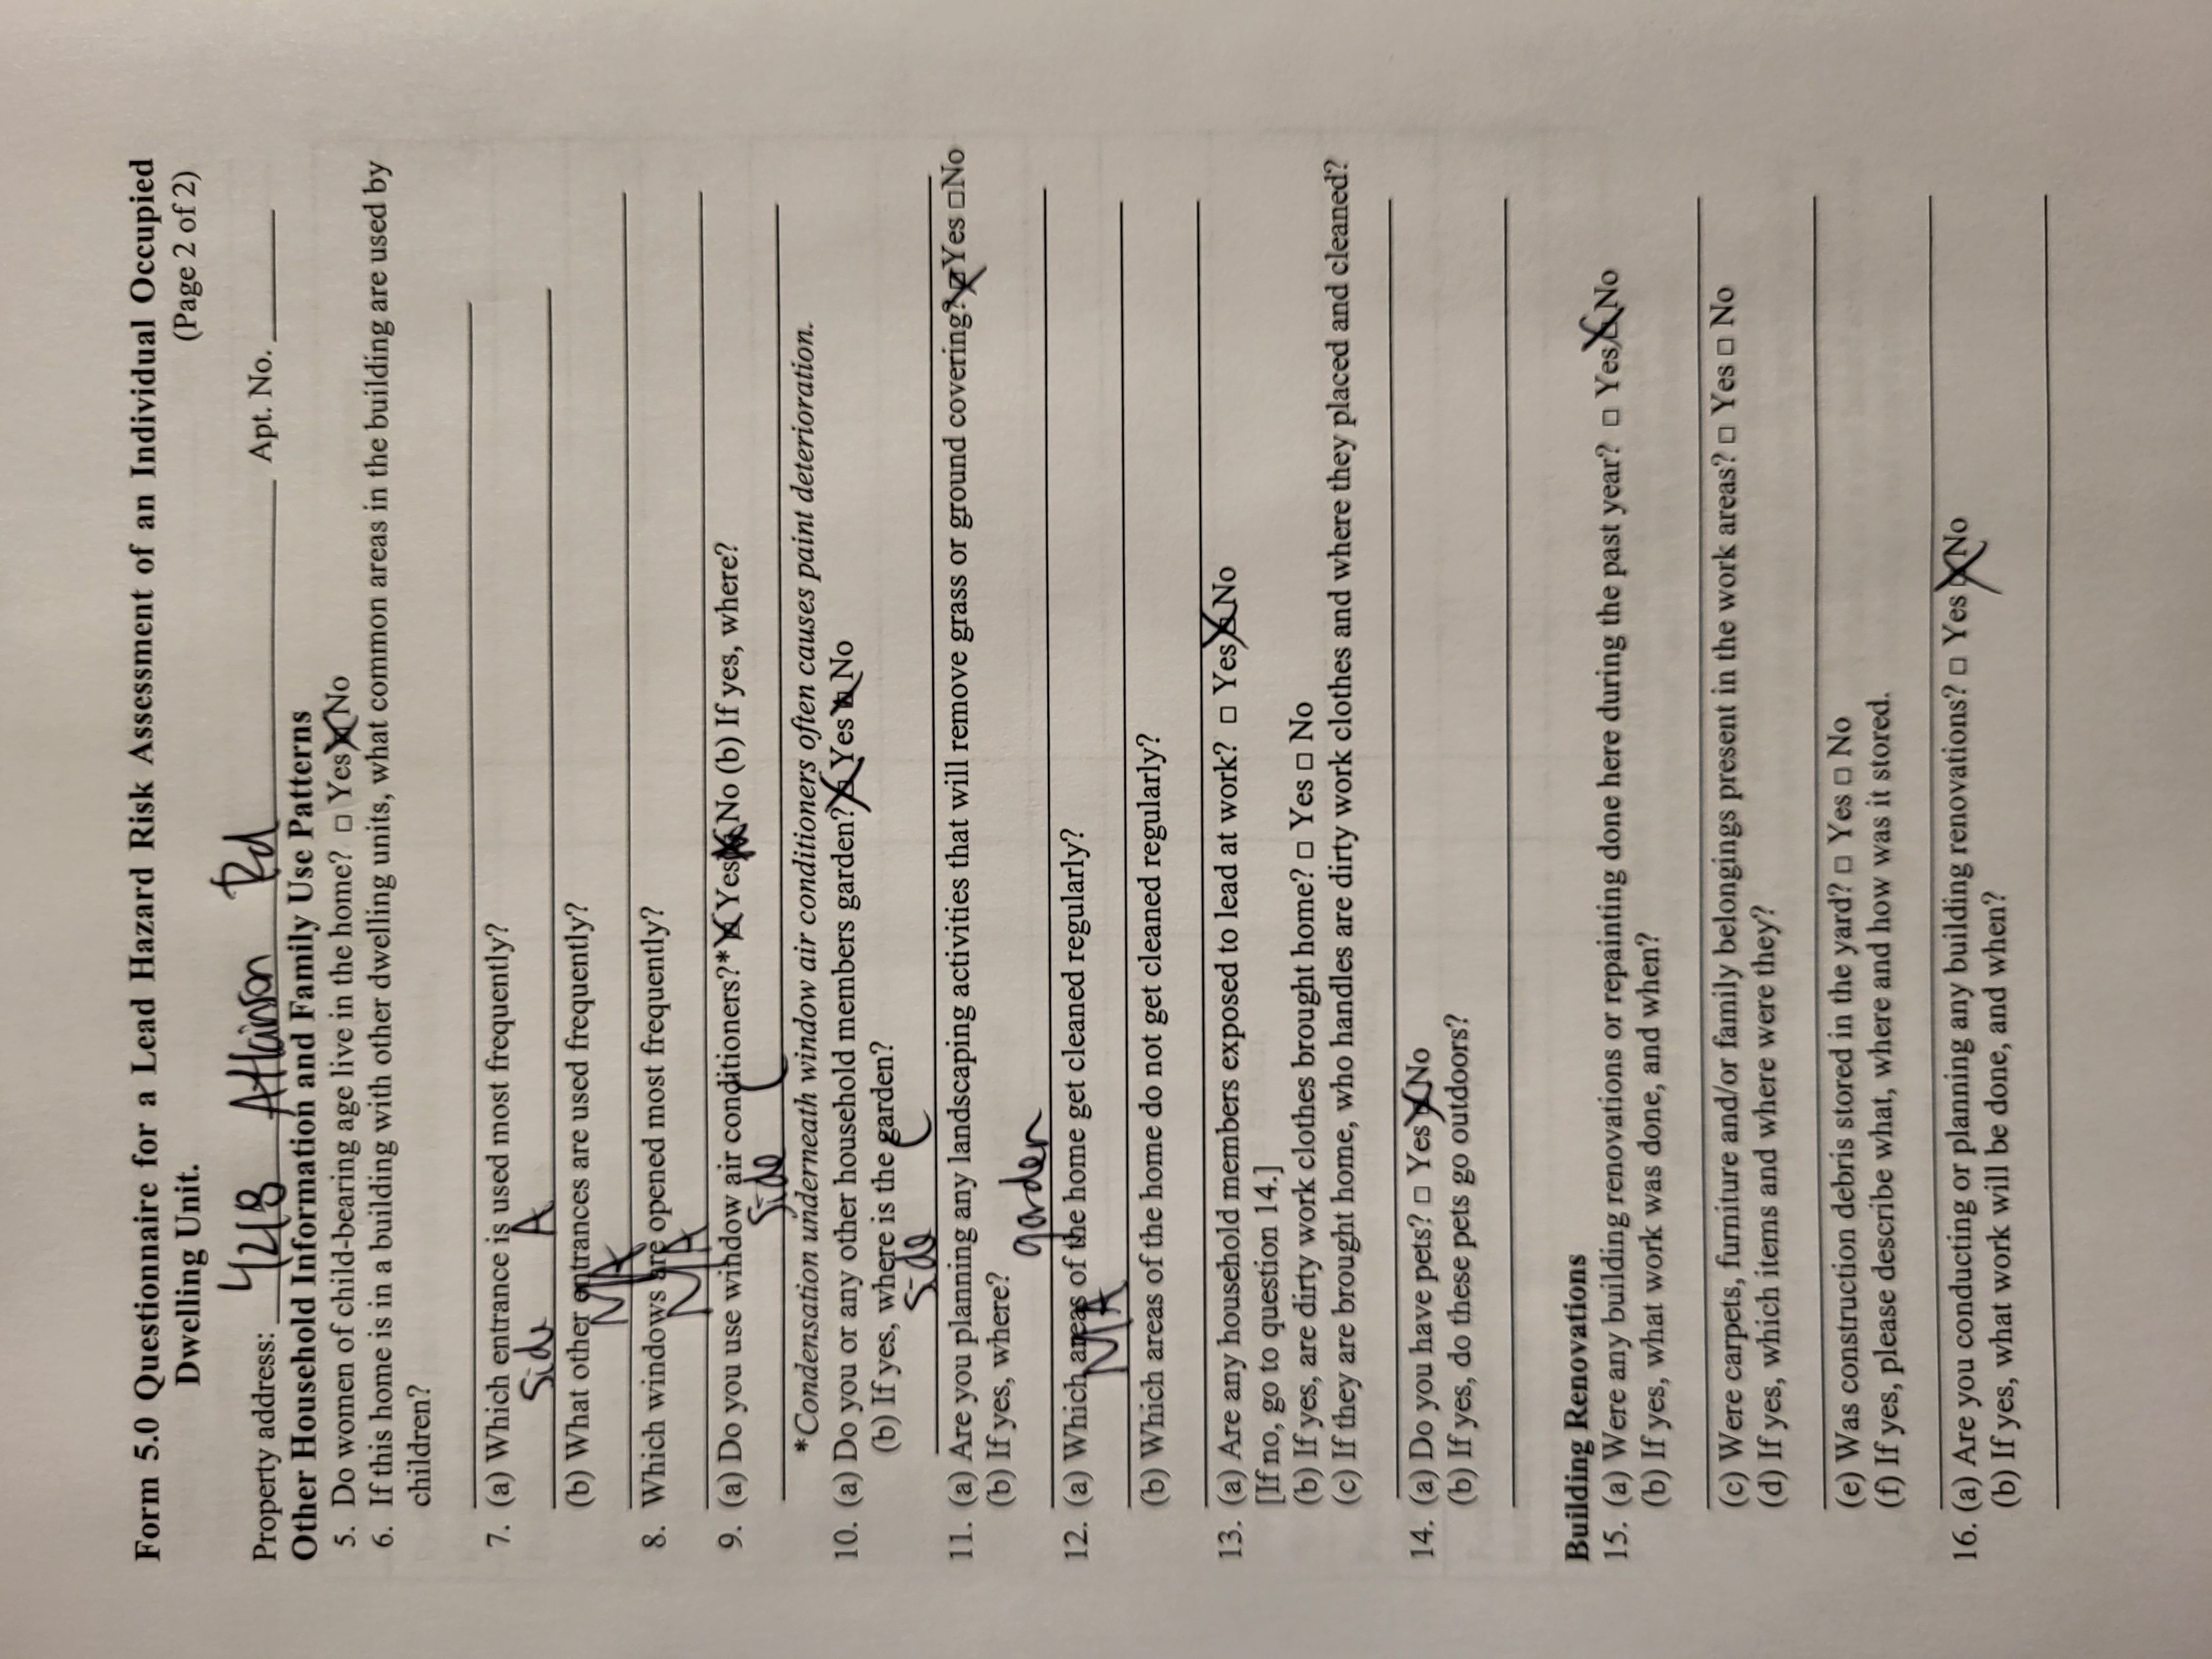 Form 5.0 Questionnaire for a Lead Hazard Risk Assessment of an Individual Occupied
Dwelling Unit. (Page 2 of 2)
Property address: 4218 Attainson Rd Apt. No.
Other Household Information and Family Use Patterns
5. Do women of child-bearing age live in the home? □ Yes ☒ No
6. If this home is in a building with other dwelling units, what common areas in the building are used by
children?
7. (a) Which entrance is used most frequently?
Side A
(b) What other entrances are used frequently?
N/A
8. Which windows are opened most frequently?
N/A
9. (a) Do you use window air conditioners?* ☒ Yes ☒ No (b) If yes, where?
Side C
*Condensation underneath window air conditioners often causes paint deterioration.
10. (a) Do you or any other household members garden? ☒ Yes ☒ No
(b) If yes, where is the garden?
Side C
11. (a) Are you planning any landscaping activities that will remove grass or ground covering? ☒ Yes □ No
(b) If yes, where?
garden
12. (a) Which areas of the home get cleaned regularly?
N/A
(b) Which areas of the home do not get cleaned regularly?
13. (a) Are any household members exposed to lead at work? □ Yes ☒ No
[If no, go to question 14.]
(b) If yes, are dirty work clothes brought home? □ Yes □ No
(c) If they are brought home, who handles are dirty work clothes and where they placed and cleaned?
14. (a) Do you have pets? □ Yes ☒ No
(b) If yes, do these pets go outdoors?
Building Renovations
15. (a) Were any building renovations or repainting done here during the past year? □ Yes ☒ No
(b) If yes, what work was done, and when?
(c) Were carpets, furniture and/or family belongings present in the work areas? □ Yes □ No
(d) If yes, which items and where were they?
(e) Was construction debris stored in the yard? □ Yes □ No
(f) If yes, please describe what, where and how was it stored.
16. (a) Are you conducting or planning any building renovations? □ Yes ☒ No
(b) If yes, what work will be done, and when?